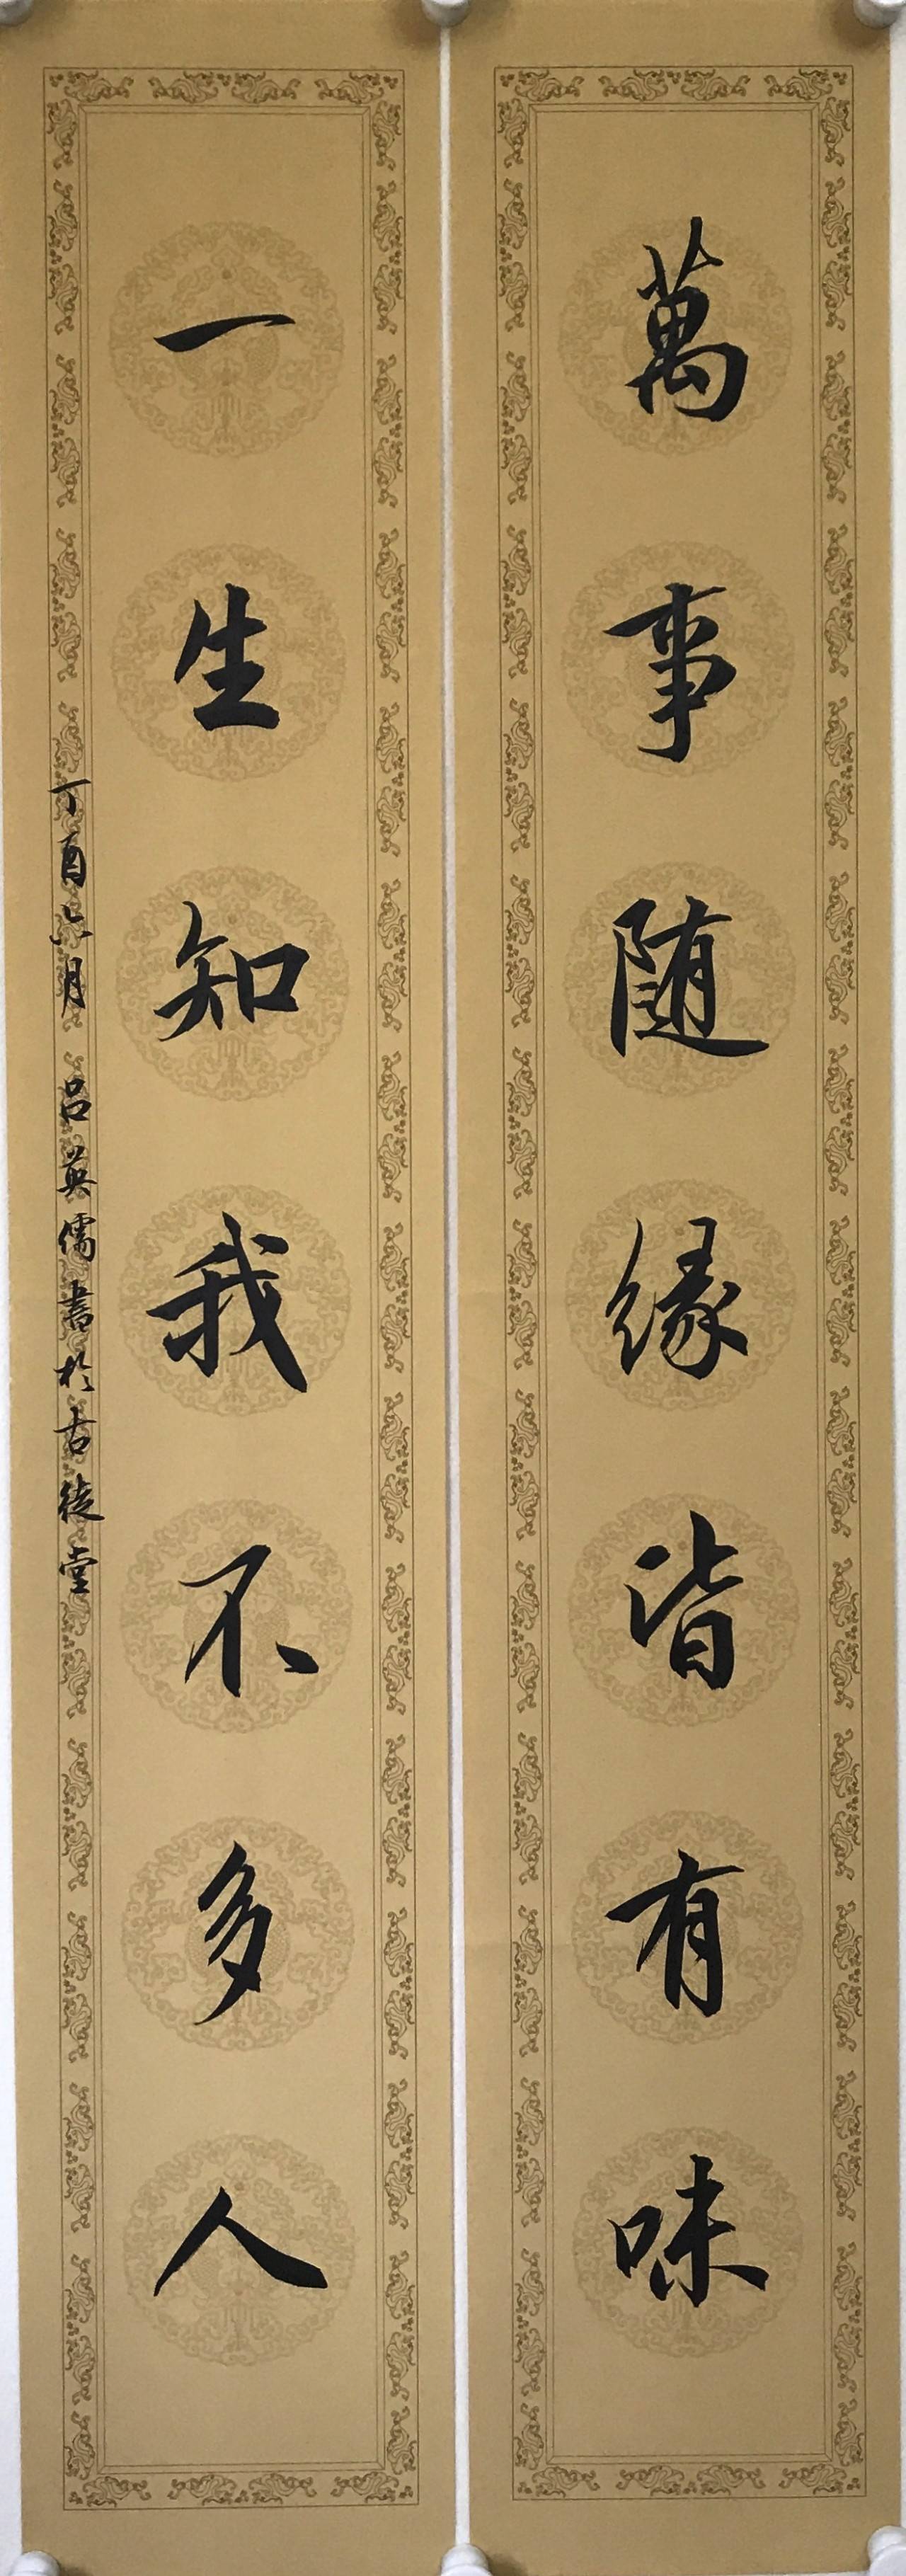 萬事随緣皆有味
一生知我不多人
丁酉六月 吕英儒書於古徒堂